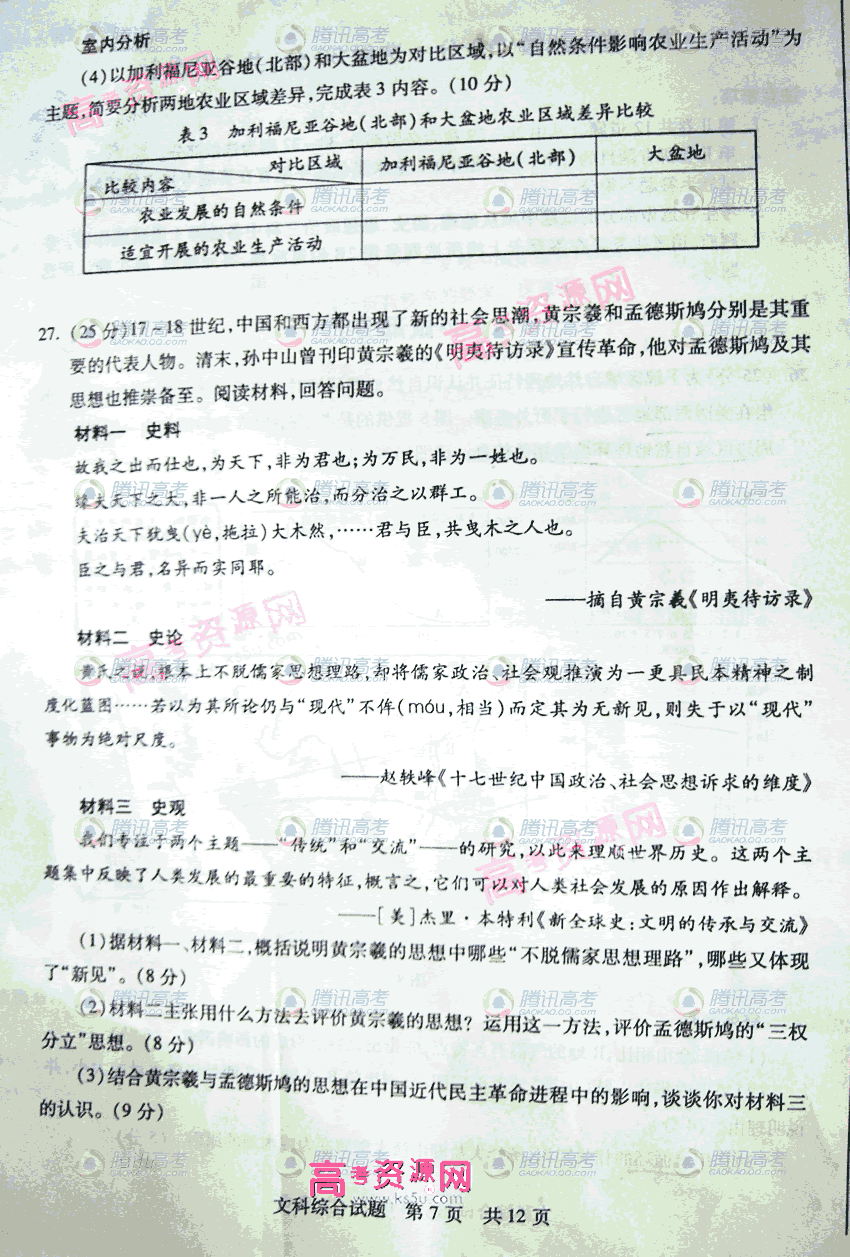 室内分析
(4)以加利福尼亚谷地(北部)和大盆地为对比区域,以“自然条件影响农业生产活动”为
主题,简要分析两地农业区域差异,完成表3内容。(10分)
表3 加利福尼亚谷地(北部)和大盆地农业区域差异比较
对比区域 加利福尼亚谷地(北部) 大盆地
比较内容
农业发展的自然条件
适宜开展的农业生产活动
27. (25分)17-18世纪,中国和西方都出现了新的社会思潮,黄宗羲和孟德斯鸠分别是其重
要的代表人物。清末,孙中山曾刊印黄宗羲的《明夷待访录》宣传革命,他对孟德斯鸠及其
思想也推崇备至。阅读材料,回答问题。
材料一 史料
故我之出而仕也,为天下,非为君也;为万民,非为一姓也。
缘夫天下之大,非一人之所能治,而分治之以群工。
夫治天下犹曳(yè,拖拉)大木然,……君与臣,共曳木之人也。
臣之与君,名异而实同耶。
——摘自黄宗羲《明夷待访录》
材料二 史论
黄氏之说,根本上不脱儒家思想理路,却将儒家政治、社会观推演为一更具民本精神之制
度化蓝图……若以为其所论仍与“现代”不侔(móu,相当)而定其为无新见,则失于以“现代”
事物为绝对尺度。
——赵轶峰《十七世纪中国政治、社会思想诉求的维度》
材料三 史观
我们专注于两个主题——“传统”和“交流”——的研究,以此来理顺世界历史。这两个主
题集中反映了人类发展的最重要的特征,概言之,它们可以对人类社会发展的原因作出解释。
——[美]杰里·本特利《新全球史:文明的传承与交流》
(1)据材料一、材料二,概括说明黄宗羲的思想中哪些“不脱儒家思想理路”,哪些又体现
了“新见”。(8分)
(2)材料二主张用什么方法去评价黄宗羲的思想?运用这一方法,评价孟德斯鸠的“三权
分立”思想。(8分)
(3)结合黄宗羲与孟德斯鸠的思想在中国近代民主革命进程中的影响,谈谈你对材料三
的认识。(9分)
高考资源网
www.ks5u.com
文科综合试题 第7页 共12页